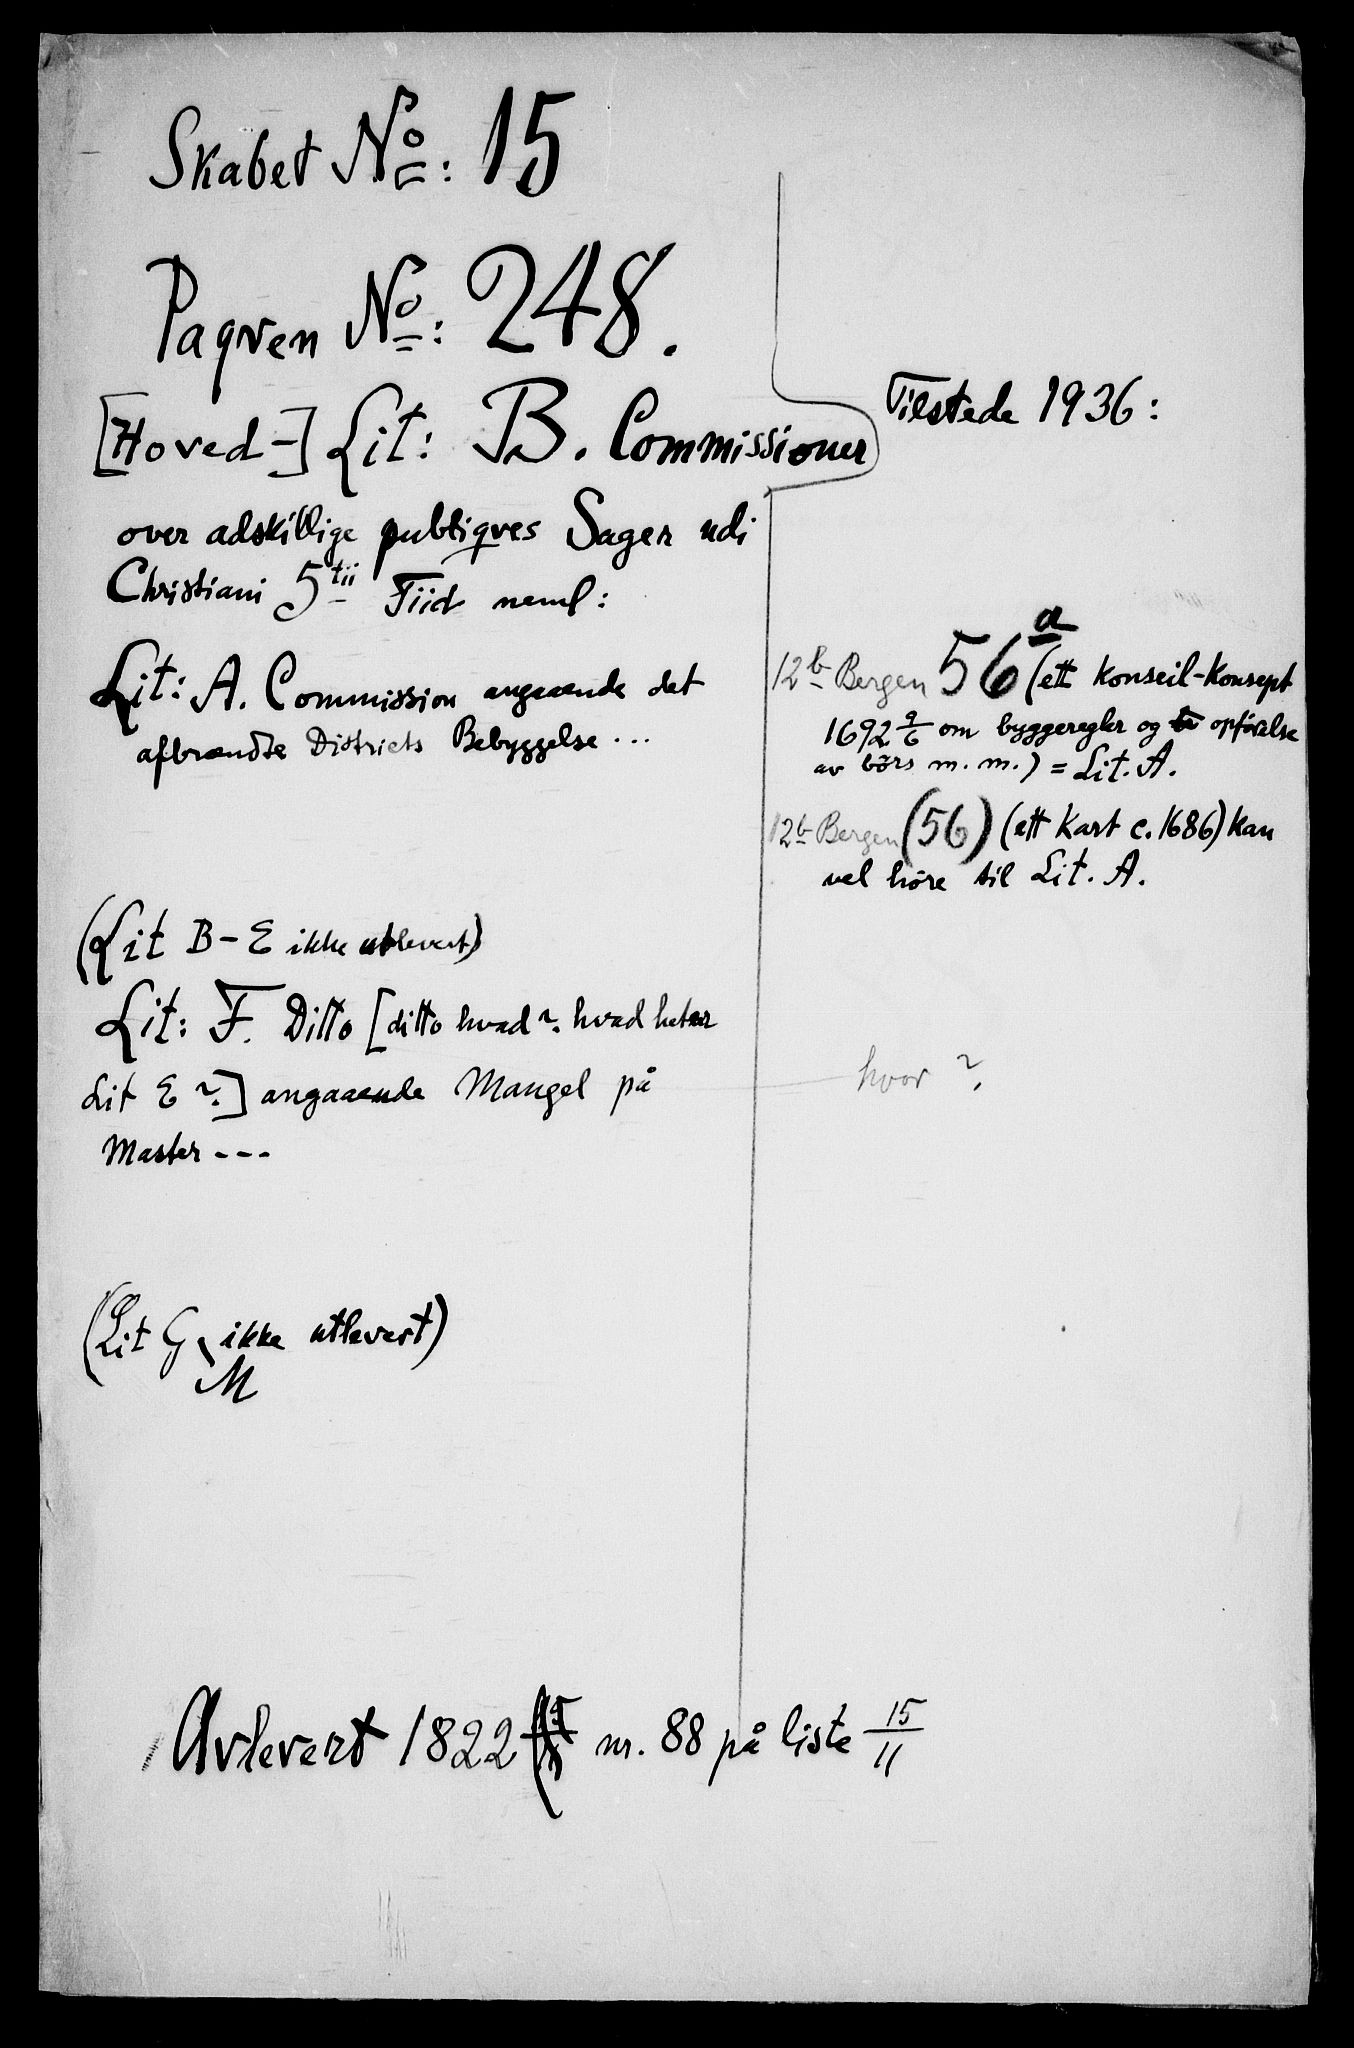 Skabet No: 15
Paqven No: 248.
[Hoved-] Lit: B. Commissioner
over adskillige publiqves Sager udi
Christiani 5tii Tiid neml:
Lit: A. Commission angaaende det
afbrændte Districts Bebyggelse ...
(Lit B - E ikke utlevert)
Lit: F. Ditto [ditto hvad? hvad heter
Lit E ?] angaaende Mangel på
Master ---
(Lit G, ikke utlevert)
M
Tilstede 1936:
12b Bergen 56a (ett konseil-konsept
1692 9/6 om byggeregler og opförelse
av börs m. m.) = Lit. A.
12b Bergen (56) (ett kart c. 1686) kan
vel höre til Lit. A.
hvor ?
Avlevert 1822 nr. 88 på liste 15/11